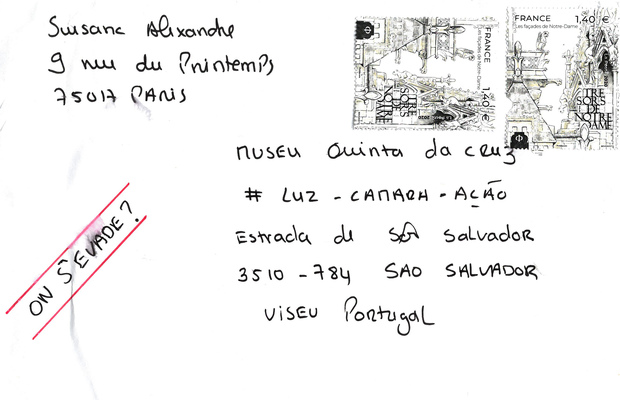 Susana Alixandre
9 rue du Printemps
75017 PARIS
FRANCE
Les façades de Notre-Dame
1,40 €
TRE
SORS
DE
NOTRE
DAME
FRANCE 1,40 €
Les façades de Notre-Dame
TRE
SORS
DE
NOTRE
DAME
MUSEU QUINTA da CRUZ
# LUZ - CAMARA - AÇÃO
Estrada de São Salvador
3510 - 784 SAO SALVADOR
VISEU Portugal
ON S'EVADE?